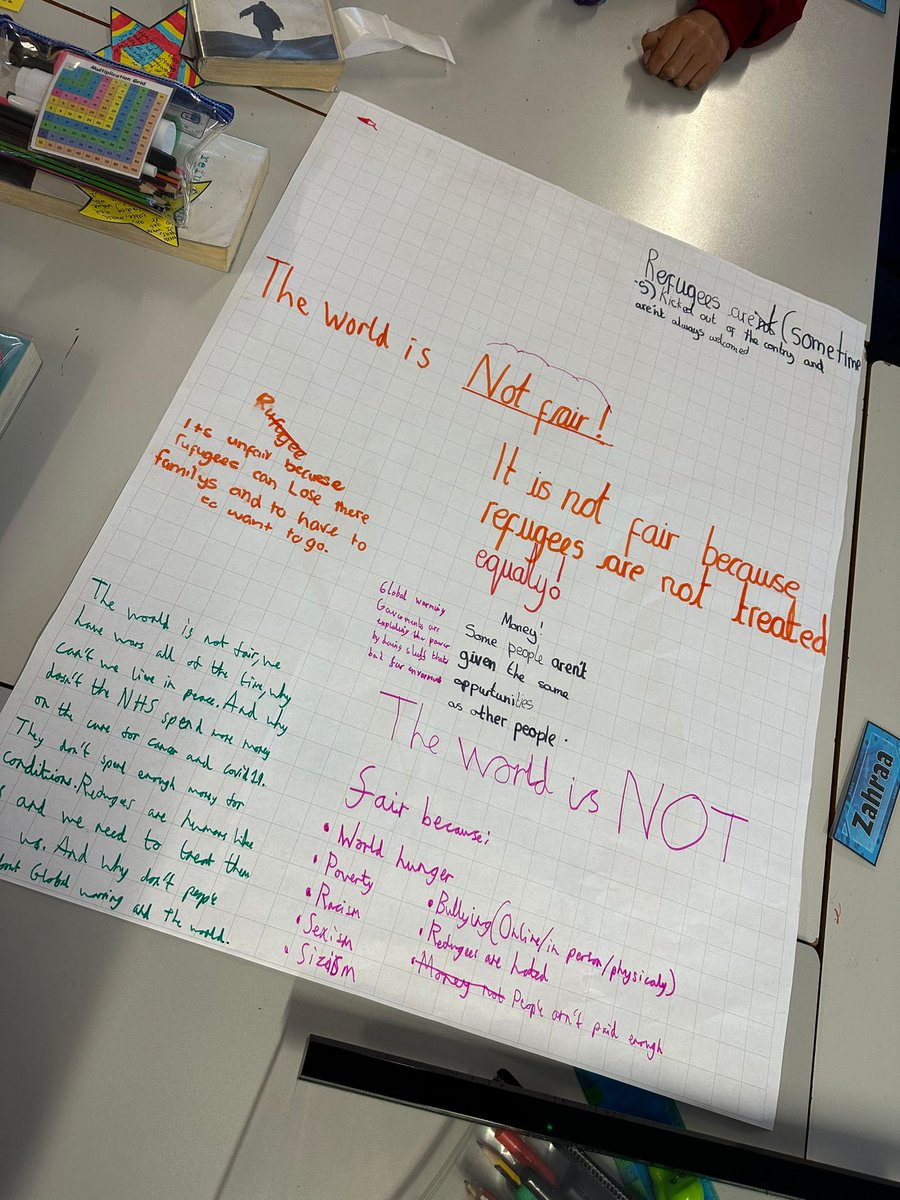 Multiplication Grid
Refugees are'nt (sometime
s) Kicked out of the contry and
are'nt always welcomed
The world is Not fair!
Rufugee
Its unfair becuese
rufugees can Lose there
familys and to have to
want to go.
It is not fair because
refugees are not treated
equaly!
Global warming
Goverments are
by being stuff thats
bad for
Money!
Some people aren't
given the same
oppurtunities
as other people.
The world is not fair, we
have wars all of the time, why
can't we live in peace. And why
dosn't the NHS spend more money
on the cure for cancer and covid 19.
They don't spend enough money for
conditions. Refugees are humans like
us and we need to treat them
us. And why don't people
about Global warming and the world.
The World is NOT
fair because:
• World hunger
• Poverty
• Racism
• Sexism
• Sizeism
• Bullying (Online/in person/physicaly)
• Refugees are hated
• Money not People arn't paid enough
Zahraa